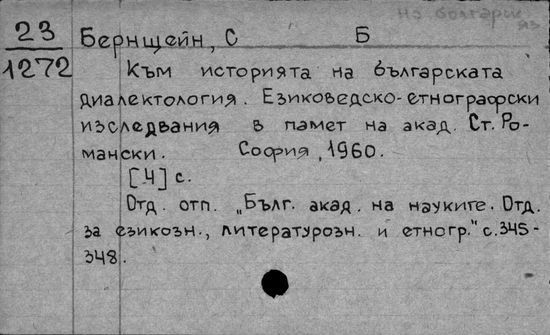 на болгарск
яз
23
1272
Бернщейн, С Б
Към историята на българската
диалектология. Езиковедско-етнографски
изследвания в памет на акад. Ст. Ро-
мански. София, 1960.
[4] с.
Отд. отп. „Бълг. акад. на науките. Отд.
за езикозн., литературозн. и етногр." с. 345-
348.